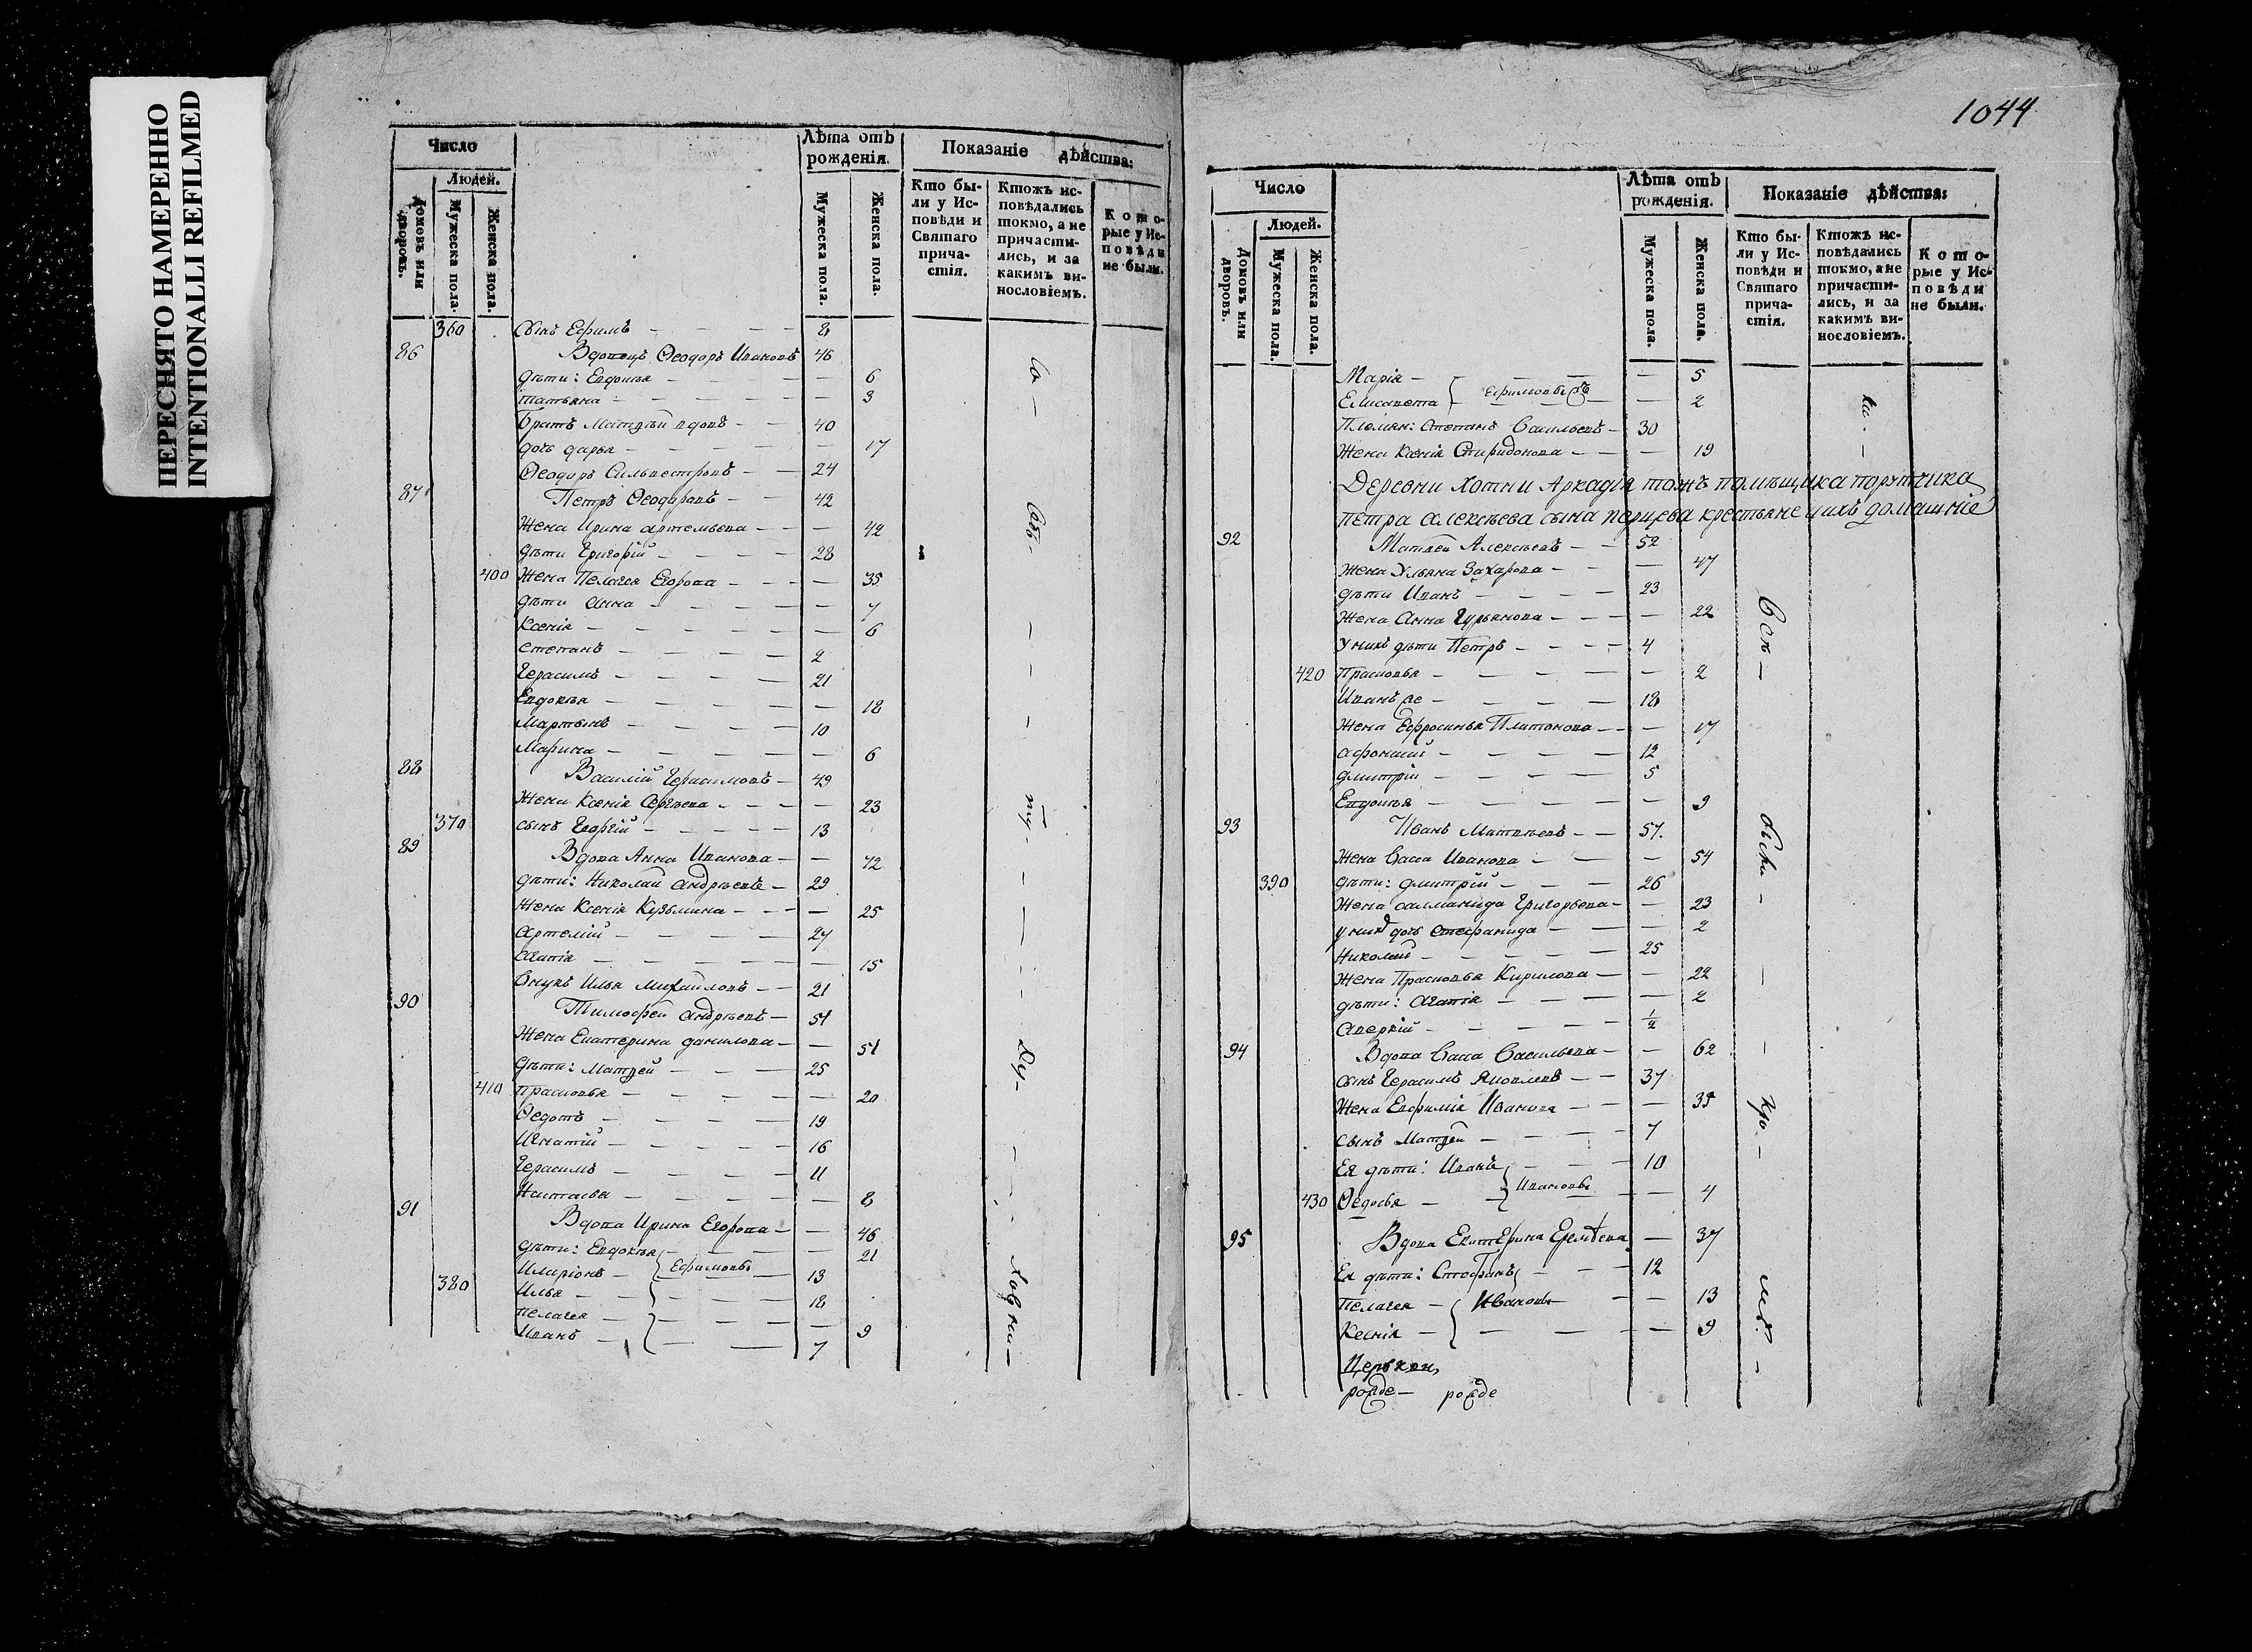 ПЕРЕСНЯТО НАМЕРЕННО
INTENTIONALLI REFILMED
Число
Людей.
Домовъ или дворовъ.
Мужеска пола.
Женска пола.
Лѣта отъ
рожденія.
Мужеска пола.
Женска пола.
Показаніе дѣйства:
Кто бы-
ли у Ис-
повѣди и
Святаго
прича-
стія.
Ктожъ ис-
повѣдались
токмо, а не
причасти-
лись, и за
какимъ ви-
нословіемъ.
Кото-
рые у Ис-
повѣди
не были.
360 Сынъ Ефимъ — 8
86 Вдовецъ Ѳеодоръ Ивановъ 46
дѣти: Евдокья — 6
татьяна — 3
братъ Матвѣй вдовъ — 40
дочь дарья — 17
Ѳеодоръ Сильвестровъ — 24
87 Петръ Ѳеодоровъ — 42
Жена Ирина артемьева — 42
дѣти Григорій — 28
400 Жена Пелагея Егорова — 35
дѣти анна — 7
Ксенія — 6
степанъ — 2
Герасимъ — 21
Евдокья — 18
Мартынъ — 10
Марина — 6
88 Василій Герасимовъ — 49
Жена Ксенія Сергѣева — 23
370 сынъ Георгій — 13
89 Вдова Анна Иванова — 72
дѣти: Николай андрѣевъ — 29
Жена Ксенія Кузьмина — 25
Артемій — 27
агапія — 15
Внукъ Илья Михайловъ — 21
90 Тимофей андрѣевъ — 51
Жена Екатерина данилова — 51
дѣти: Матвей — 25
410 прасковья — 20
Ѳедотъ — 19
Игнатій — 16
Герасимъ — 11
Настасья — 8
91 Вдова Ирина Егорова — 46
дѣти: Евдокья — 21
Иларіонъ — Ефимовы 13
380 Илья — 12
пелагея — 9
Иванъ — 7
со — отъ — ту — Ду — ховни —
1044
Число
Людей.
Домовъ или дворовъ.
Мужеска пола.
Женска пола.
Лѣта отъ
рожденія.
Мужеска пола.
Женска пола.
Показаніе дѣйства:
Кто бы-
ли у Ис-
повѣди и
Святаго
прича-
стія.
Ктожъ ис-
повѣдались
токмо, а не
причасти-
лись, и за
какимъ ви-
нословіемъ.
Кото-
рые у Ис-
повѣди
не были.
Марія — 5
Елисавета — Ефимовы 2
Племян: Степанъ Васильевъ — 30
Жена Ксенія Спиридонова — 19
ка —
Деревни Хотни Аркадія тожъ помѣщика порутчика
петра алексѣева сына перцева крестьяне ихъ домашніе
92 Матвей Алексѣевъ — 52
Жена Ульяна Захарова — 47
дѣти Иванъ — 23
Жена Анна Гурьянова — 22
у нихъ дѣти Петръ — 4
420 Прасковья — 2
Иванъ же — 18
Жена Ефросинья Платонова — 17
афонасий — 12
дмитрій — 5
Евдокья — 9
93 Иванъ Матвѣевъ — 57
Жена Васса Иванова — 54
390 дѣти: дмитрій — 26
Жена саламанида Григорьева — 23
у них дочь стефанида — 2
Николай — 25
Жена Прасковья Кирилова — 22
дѣти: агапія — 2
Аверкій — 1/2
94 Вдова Васса Васильева — 62
сынъ Герасимъ Яковлевъ — 37
Жена Евфимія Иванова — 35
сынъ Матвей — 7
Ея дѣти: Иванъ — 10
430 Ѳедосья — Ивановы 4
95 Вдова Екатерина Еремѣева — 37
Ея дѣти: Стефанъ — 12
Пелагея — Ивановы — 13
Ксенія — 9
Всѣ — быхъ — кро —
Церькви,
рожде — рожде